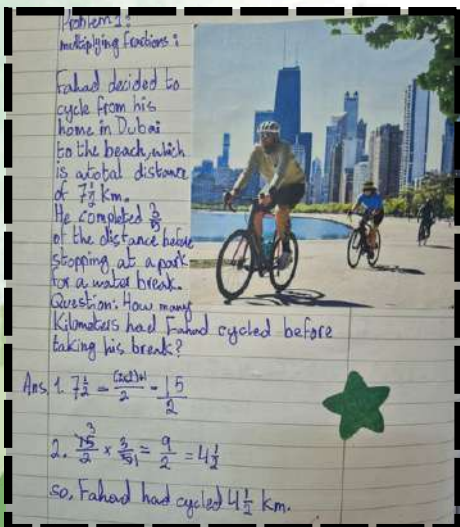 Problem 1:
multiplying fractions:
Fahad decided to
cycle from his
home in Dubai
to the beach, which
is a total distance
of 7 1/2 km.
He completed 3/5
of the distance before
stopping at a park
for a water break.
Question: How many
Kilometers had Fahad cycled before
taking his break?
Ans 1. 7 1/2 = (7x2)+1/2 = 15/2
2. 15/2 3 × 3/5 1 = 9/2 = 4 1/2
so, Fahad had cycled 4 1/2 km.